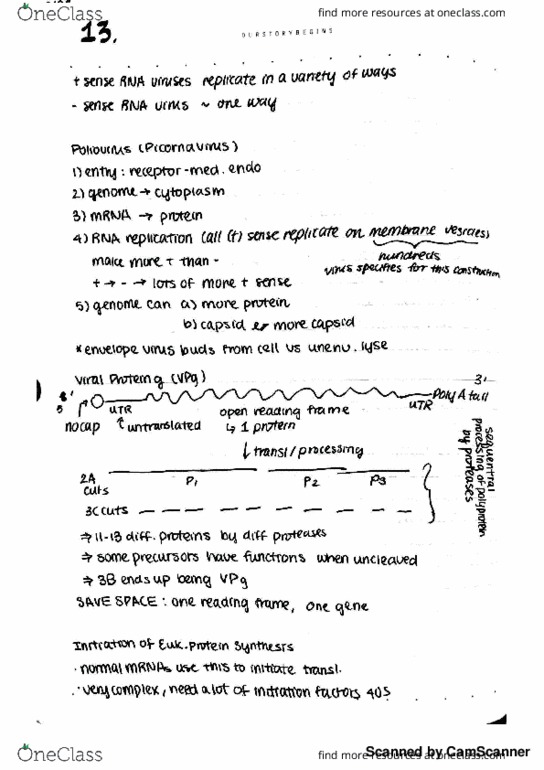 OneClass find more resources at oneclass.com
13.
OURSTORYBEGINS
+ sense RNA viruses replicate in a variety of ways
- sense RNA virus ~ one way
Poliovirus (Picornavirus)
1) entry: receptor-med. endo
2) genome → cytoplasm
3) mRNA → protein
4) RNA replication (all (+) sense replicate on membrane vesicles)
make more + than -
hundreds
+ → - → lots of more + sense
virus specifies for this construction
5) genome can a) more protein
b) capsid more capsid
*envelope virus buds from cell vs unenv. lyse
Viral Protein g (VPg)
3'
5'
Poly A tail
UTR
open reading frame
UTR
no cap
↑untranslated
↳ 1 protein
↓transl/processing
sequential processing of polyprotein by proteases
2A cuts
P1 P2 P3
3C cuts
⇒ 11-13 diff. proteins by diff proteases
⇒ some precursors have functions when uncleaved
⇒ 3B ends up being VPg
SAVE SPACE: one reading frame, one gene
Initiation of Euk. Protein Synthesis
· normal mRNAs use this to initiate transl.
· very complex, need a lot of initiation factors 40S
OneClass find more resources at oneclass.com
Scanned by CamScanner